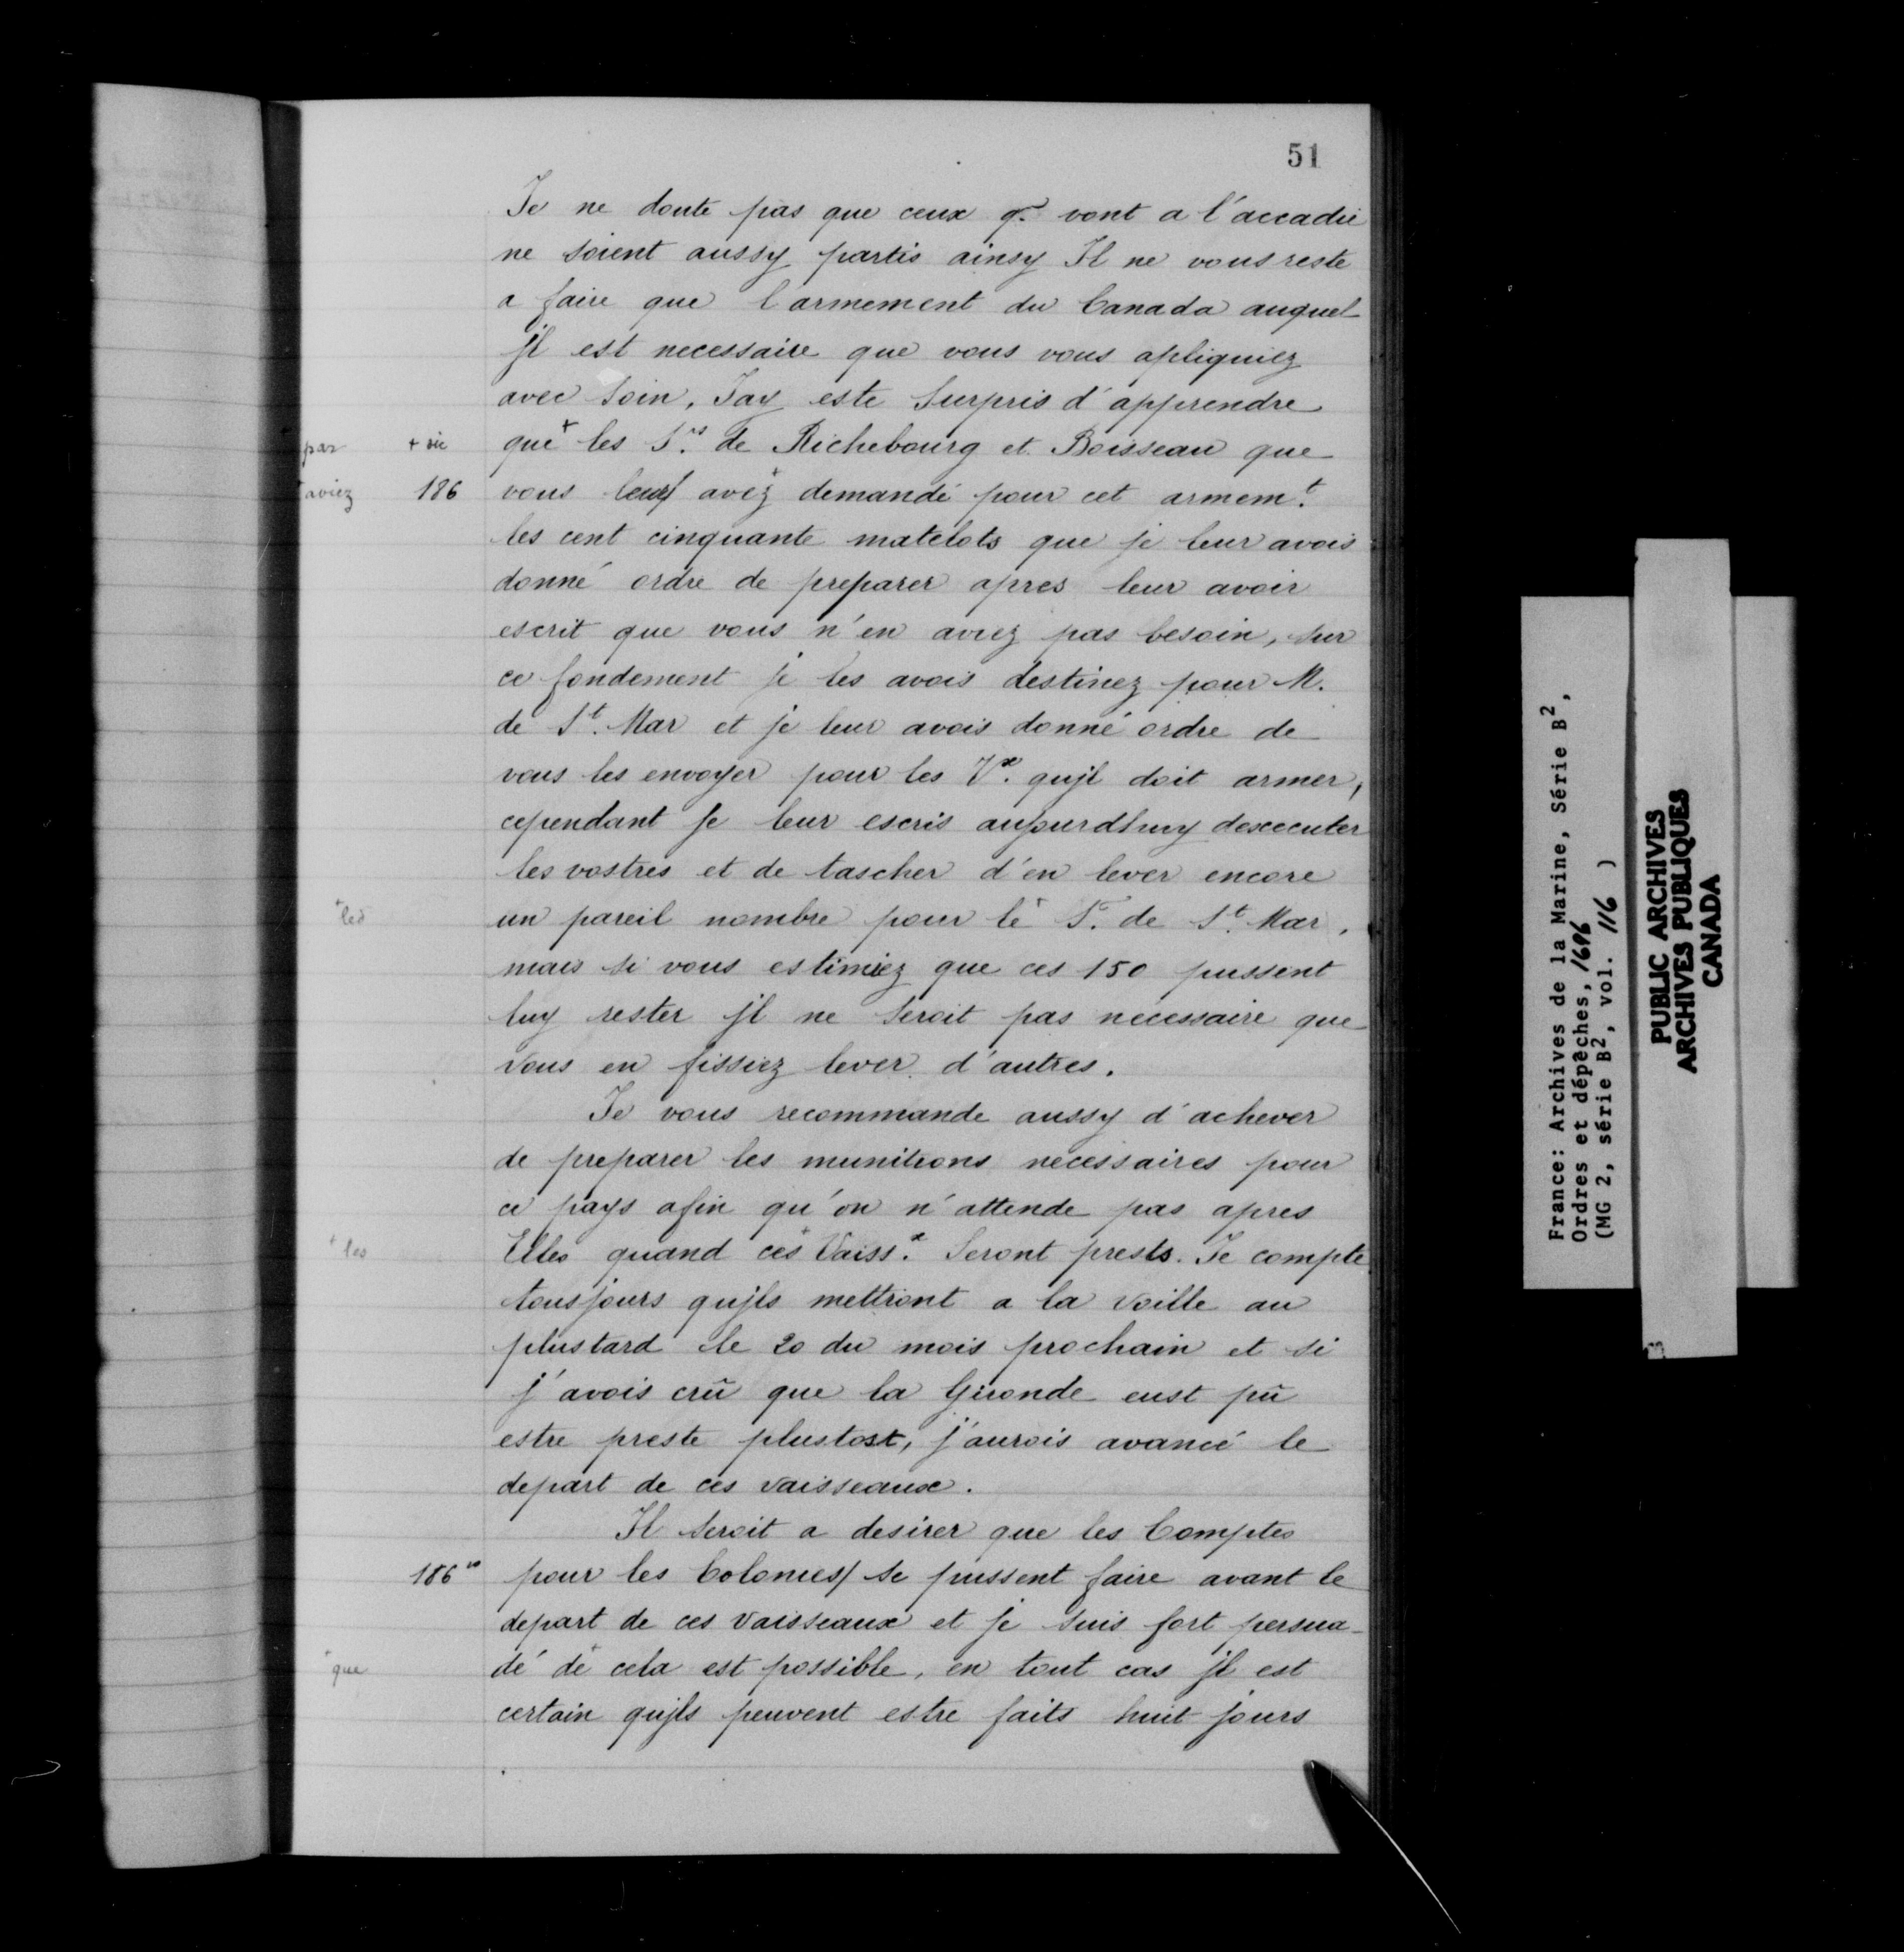 51
Je ne doute pas que ceux q. vont a l'accadie
ne soient aussy partis ainsy Il ne vous reste
a faire que l'armement du Canada auquel
jl est necessaire que vous vous apliquiez
avec soin, Jay este surpris d'apprendre
par + sic que + les S.rs de Richebourg et Boisseau que
aviez 186 vous leur/ avez + demandé pour cet armem.t
les cent cinquante matelots que je leur avois
donné ordre de preparer apres leur avoir
escrit que vous n'en aviez pas besoin, sur
ce fondement je les avois destinez pour M.
de S.t Mar et je leur avois donné ordre de
vous les envoyer pour les V.x qujl doit armer,
cependant je leur escris aujourdhuy dexecuter
les vostres et de tascher d'en lever encore
+ led un pareil nombre pour le + S.r de S.t Mar,
mais si vous estimiez que ces 150 pussent
luy rester jl ne seroit pas necessaire que
vous en fissiez lever d'autres.
Je vous recommande aussy d'achever
de preparer les munitions necessaires pour
ce pays afin qu'on n'attende pas apres
+ les Elles quand ces + Vaiss.x seront prests. Je compte
tousjours qujls mettront a la voille au
plustard le 20 du mois prochain et si
j'avois crû que la Gironde eust pû
estre preste plustost, j'aurois avancé le
depart de ces vaisseaux.
Il seroit a desirer que les Comptes
186 vo pour les Colonies/ se pussent faire avant le
depart de ces vaisseaux et je suis fort persua-
+ que dé de + cela est possible, en tout cas jl est
certain qujls peuvent estre faits huit jours
France: Archives de la Marine, Série B2,
Ordres et dépêches, 1696
(MG 2, série B2, vol. 116 )
PUBLIC ARCHIVES
ARCHIVES PUBLIQUES
CANADA